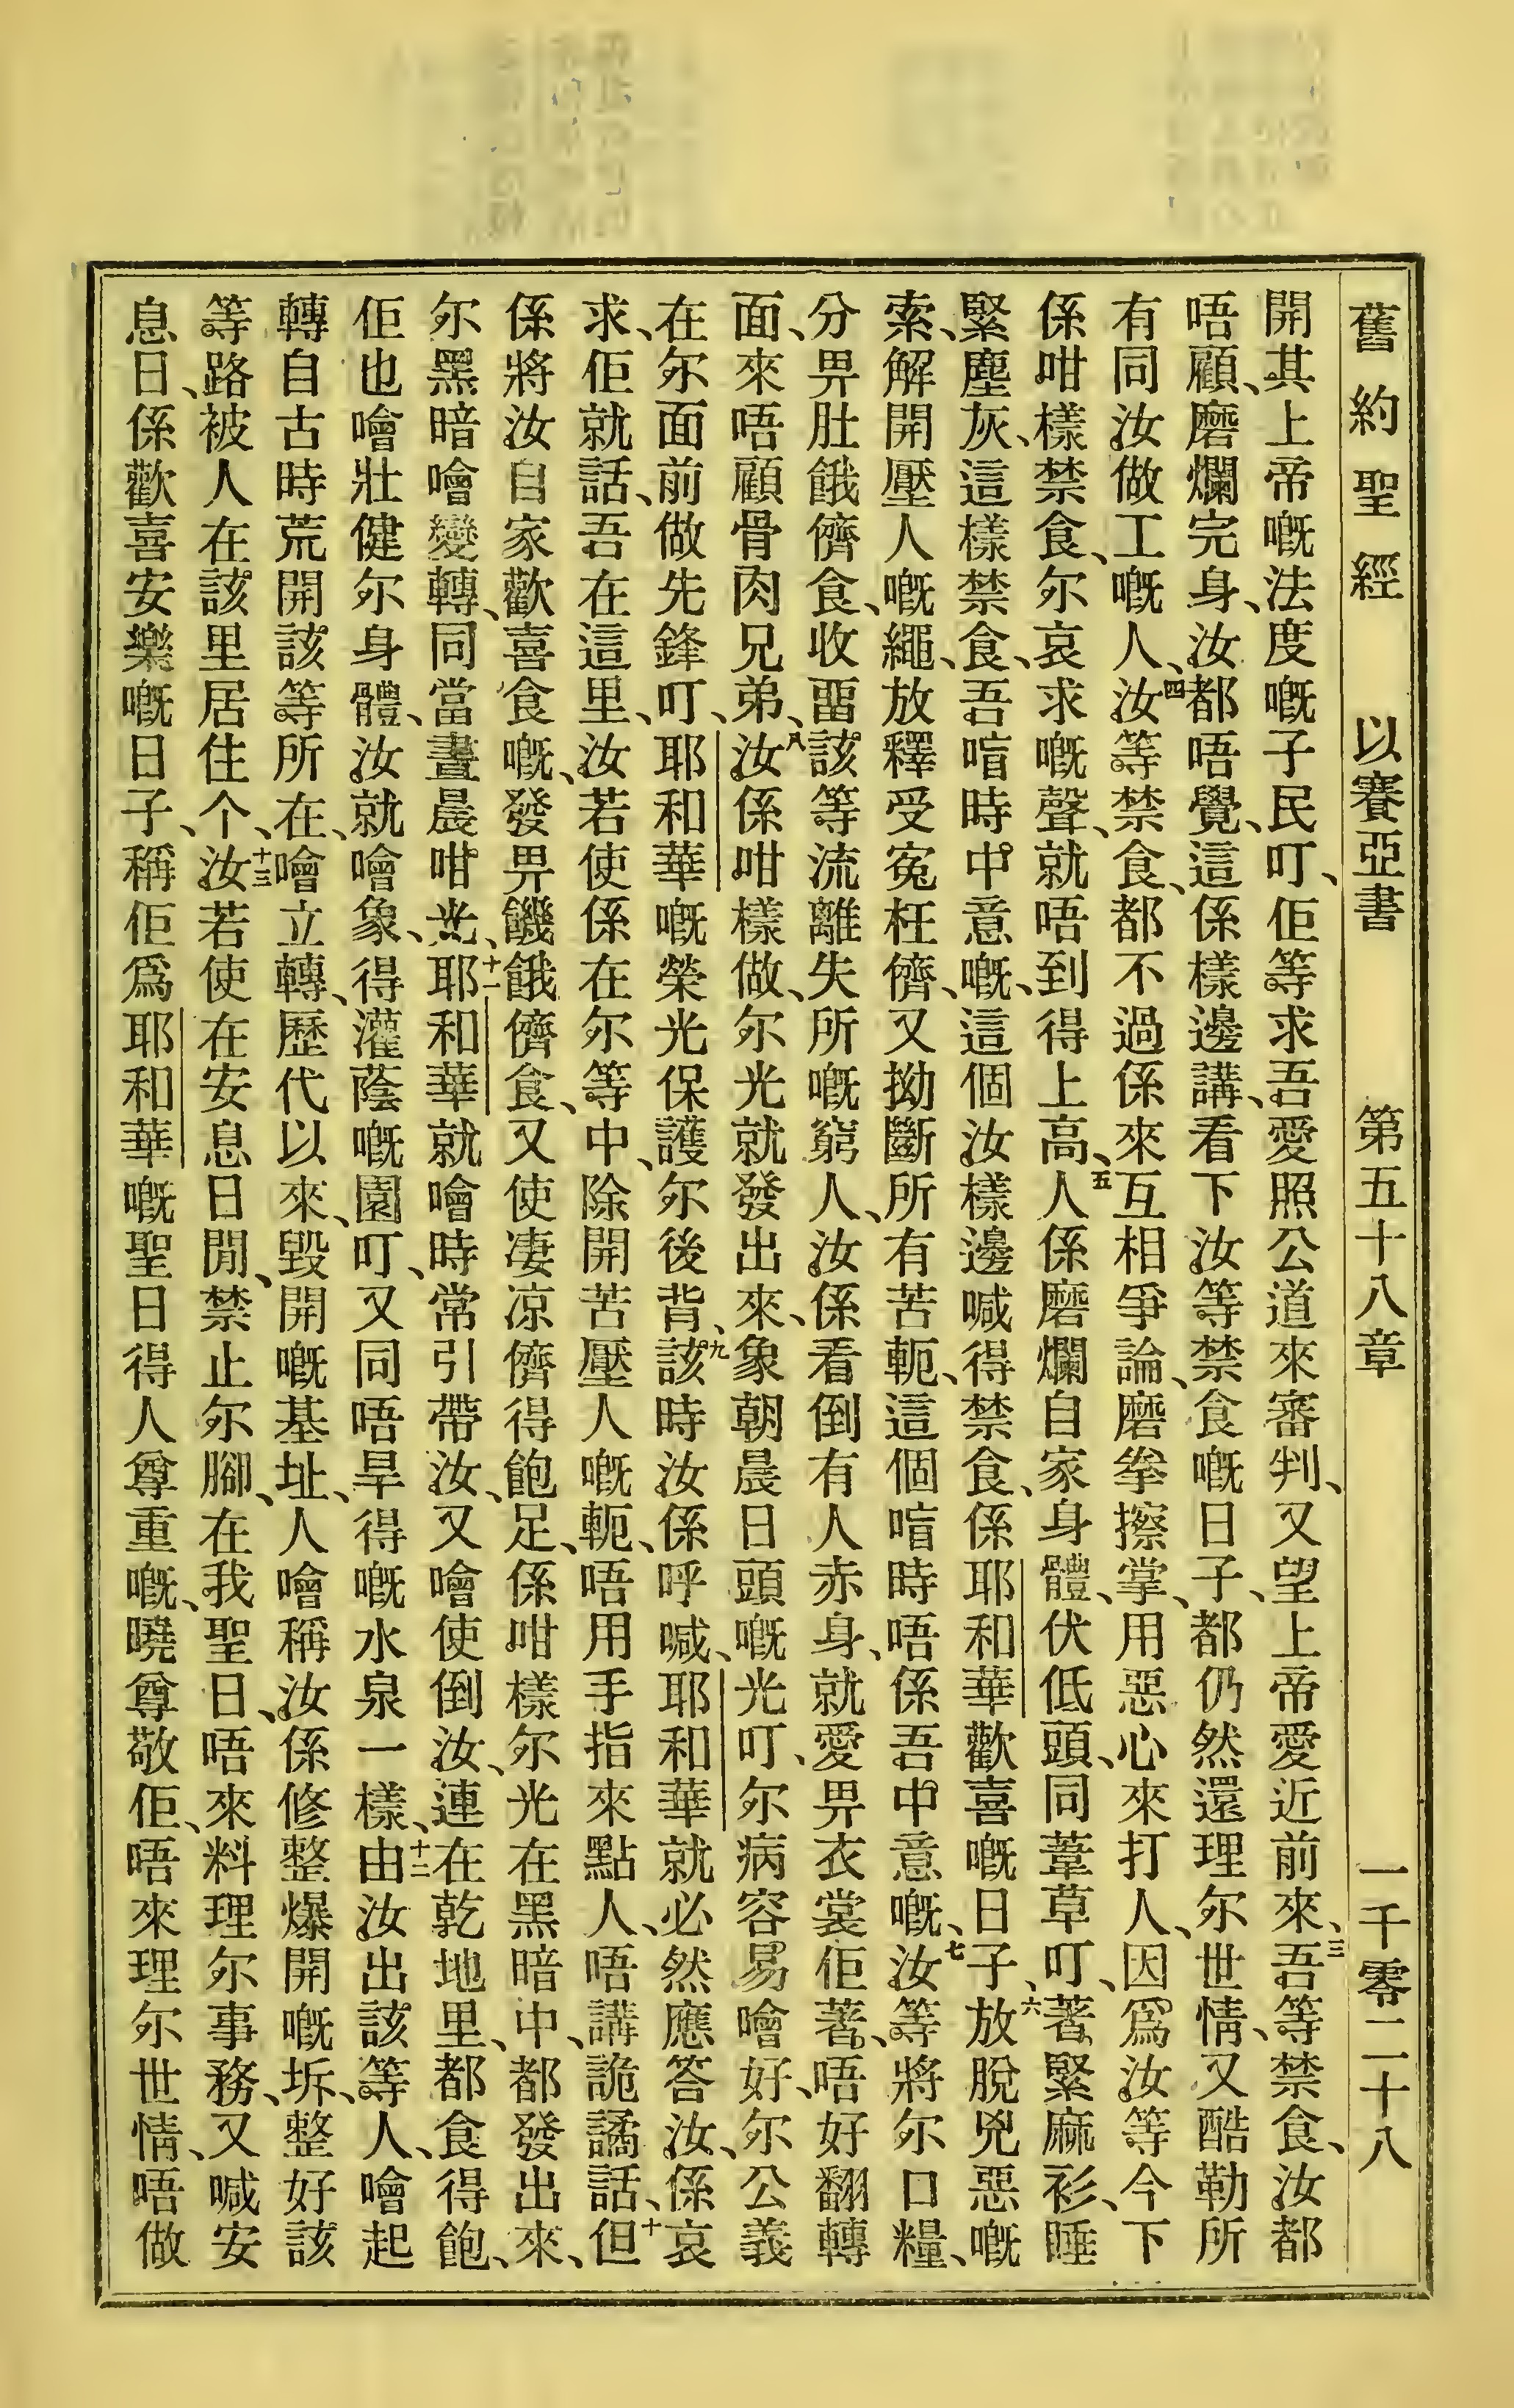 舊約聖經 以賽亞書 第五十八章 一千零二十八
開其上帝嘅法度嘅子民叮、佢等求吾愛照公道來審判、又望上帝愛近前來、三吾等禁食、汝都
唔顧、磨爛完身、汝都唔覺、這係樣邊講、看下汝等禁食嘅日子、都仍然還理尔世情、又酷勒所
有同汝做工嘅人、四汝等禁食、都不過係來互相爭論、磨拳擦掌、用惡心來打人、因爲汝等今下
係咁樣禁食、尔哀求嘅聲、就唔到得上高、五人係磨爛自家身體、伏低頭、同葦草叮、著緊麻衫、睡
緊塵灰、這樣禁食、吾喑時中意嘅、這個汝樣邊喊得禁食、係耶和華歡喜嘅日子、六放脫兇惡嘅
索、解開壓人嘅繩、放釋受寃枉儕、又拗斷所有苦軛、這個喑時唔係吾中意嘅、七汝等將尔口糧、
分畀肚餓儕食、收畱該等流離失所嘅窮人、汝係看倒有人赤身、就愛畀衣裳佢著、唔好翻轉
面、來唔顧骨肉兄弟、八汝係咁樣做、尔光就發出來、象朝晨日頭嘅光叮、尔病容易噲好、尔公義
在尔面前做先鋒叮、耶和華嘅榮光保護尔後背、九該時汝係呼喊、耶和華就必然應答汝、係哀
求、佢就話、吾在這里、汝若使係在尔等中、除開苦壓人嘅軛、唔用手指來點人、唔講詭譎話、十但
係將汝自家歡喜食嘅、發畀饑餓儕食、又使凄凉儕得飽足、係咁樣尔光在黑暗中、都發出來、
尔黑暗噲變轉、同當晝晨咁光、十一耶和華就噲時常引帶汝、又噲使倒汝、連在乾地里、都食得飽、
佢也噲壯健尔身體、汝就噲象、得灌蔭嘅園叮、又同唔旱得嘅水泉一樣、十二由汝出該等人、噲起
轉自古時荒開該等所在、噲立轉、歷代以來、毀開嘅基址、人噲稱汝係修整爆開嘅坼、整好該
等路被人在該里居住个、十三汝若使在安息日閒、禁止尔腳、在我聖日、唔來料理尔事務、又喊安
息日、係歡喜安樂嘅日子、稱佢爲耶和華嘅聖日得人尊重嘅、曉尊敬佢、唔來理尔世情、唔做